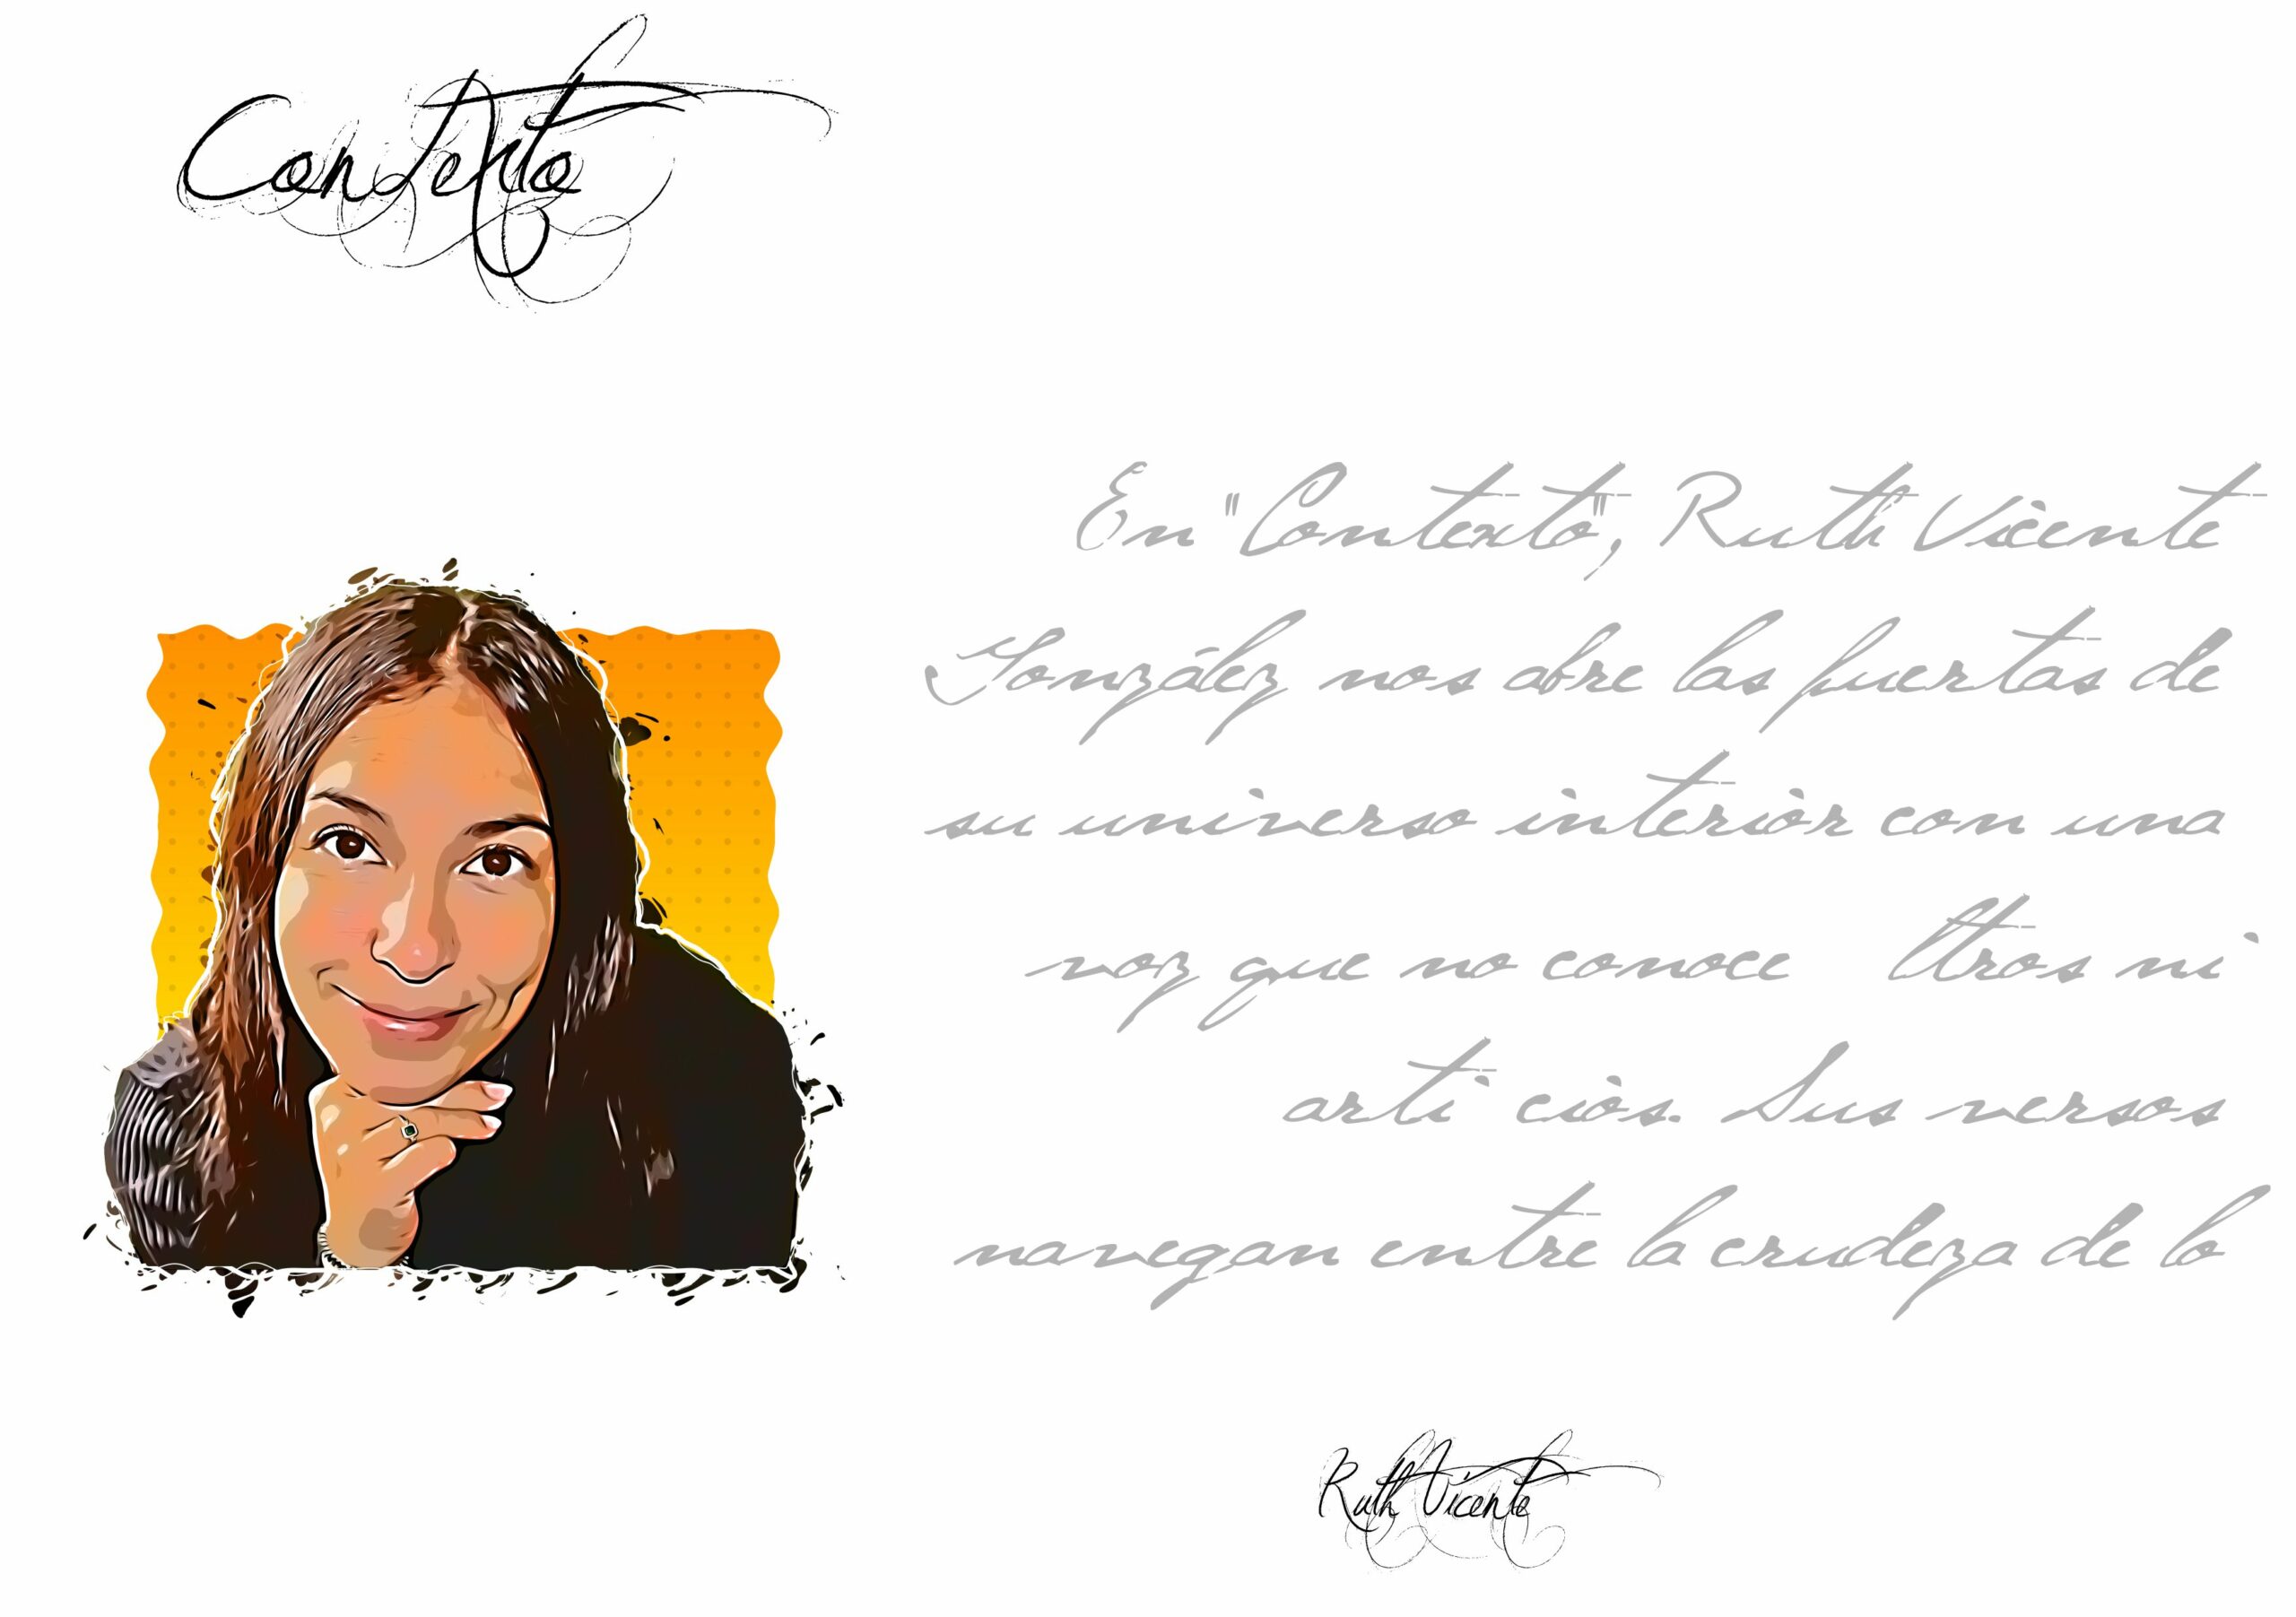 Contexto
En "Contexto", Ruth Vicente
González nos abre las puertas de
su universo interior con una
voz que no conoce ltros ni
arti cios. Sus versos
navegan entre la crudeza de lo
Ruth Vicente